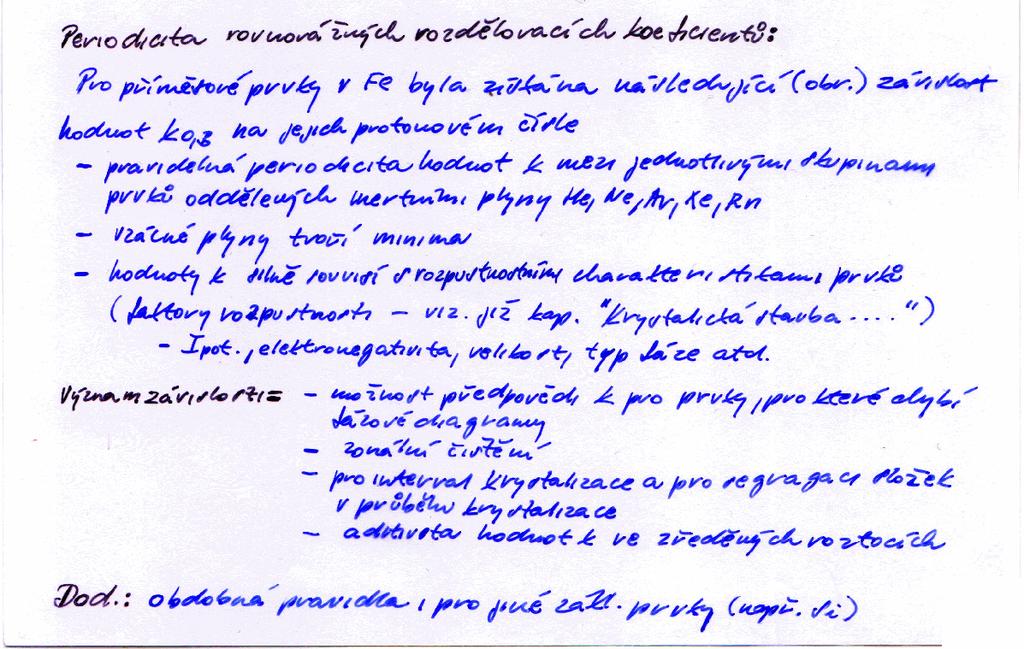 Periodicita rovnovážných rozdělovacích koeficientů:
Pro příměsové prvky v Fe byla zjištěna následující (obr.) závislost
hodnot k0,B na jejich protonovém čísle
- pravidelná periodicita hodnot k mezi jednotlivými skupinami
prvků oddělených inertními plyny He, Ne, Ar, Xe, Rn
- vzácné plyny tvoří minima
- hodnoty k silně souvisí s rozpustnostními charakteristikami prvků
(faktory rozpustnosti - viz. již kap. "Krystalická stavba ....")
- Ipot., elektronegativita, velikost, typ fáze atd.
Význam závislosti = - možnost předpovědi k pro prvky, pro které chybí
fázové diagramy
- zonální čištění
- pro interval krystalizace a pro segragaci složek
v průběhu krystalizace
- aditivita hodnot k ve zředěných roztocích
Dod.: obdobná pravidla i pro jiné zákl. prvky (např. Si)